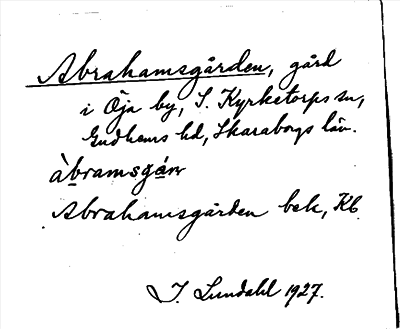 Abrahamsgården, gård
i Öja by, S. Kyrketorps sn,
Gudhems hd, Skaraborgs län.
àbramsgá̱rn
Abrahamsgården bek, Kb
I. Lundahl 1927.